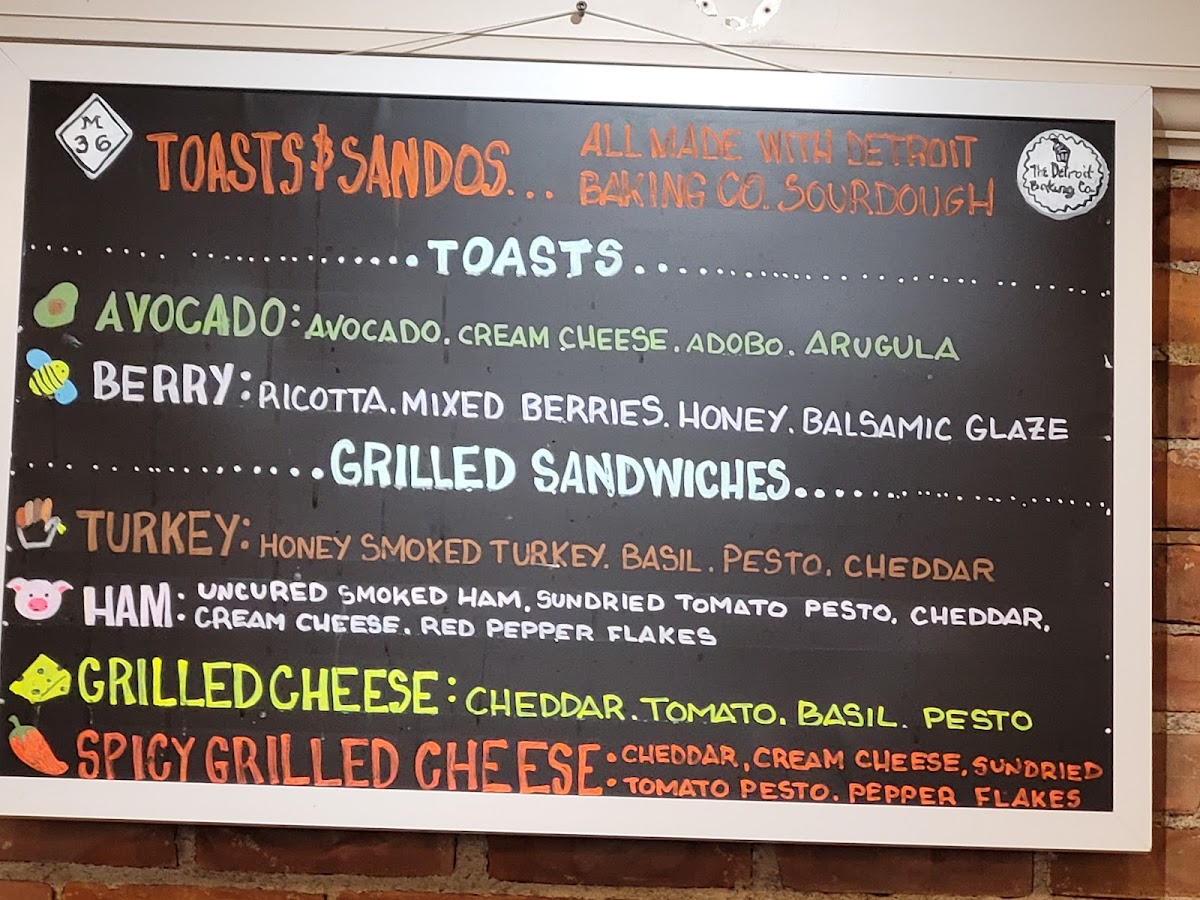 M
36
TOASTS & SANDOS...
ALL MADE WITH DETROIT
BAKING CO. SOURDOUGH
The Detroit
Baking Co
TOASTS
AVOCADO: AVOCADO. CREAM CHEESE. ADOBO. ARUGULA
BERRY: RICOTTA. MIXED BERRIES. HONEY. BALSAMIC GLAZE
GRILLED SANDWICHES
TURKEY: HONEY SMOKED TURKEY. BASIL. PESTO. CHEDDAR
HAM: UNCURED SMOKED HAM, SUNDRIED TOMATO PESTO, CHEDDAR,
CREAM CHEESE. RED PEPPER FLAKES
GRILLED CHEESE: CHEDDAR. TOMATO. BASIL. PESTO
SPICY GRILLED CHEESE: CHEDDAR, CREAM CHEESE, SUNDRIED
TOMATO PESTO. PEPPER FLAKES